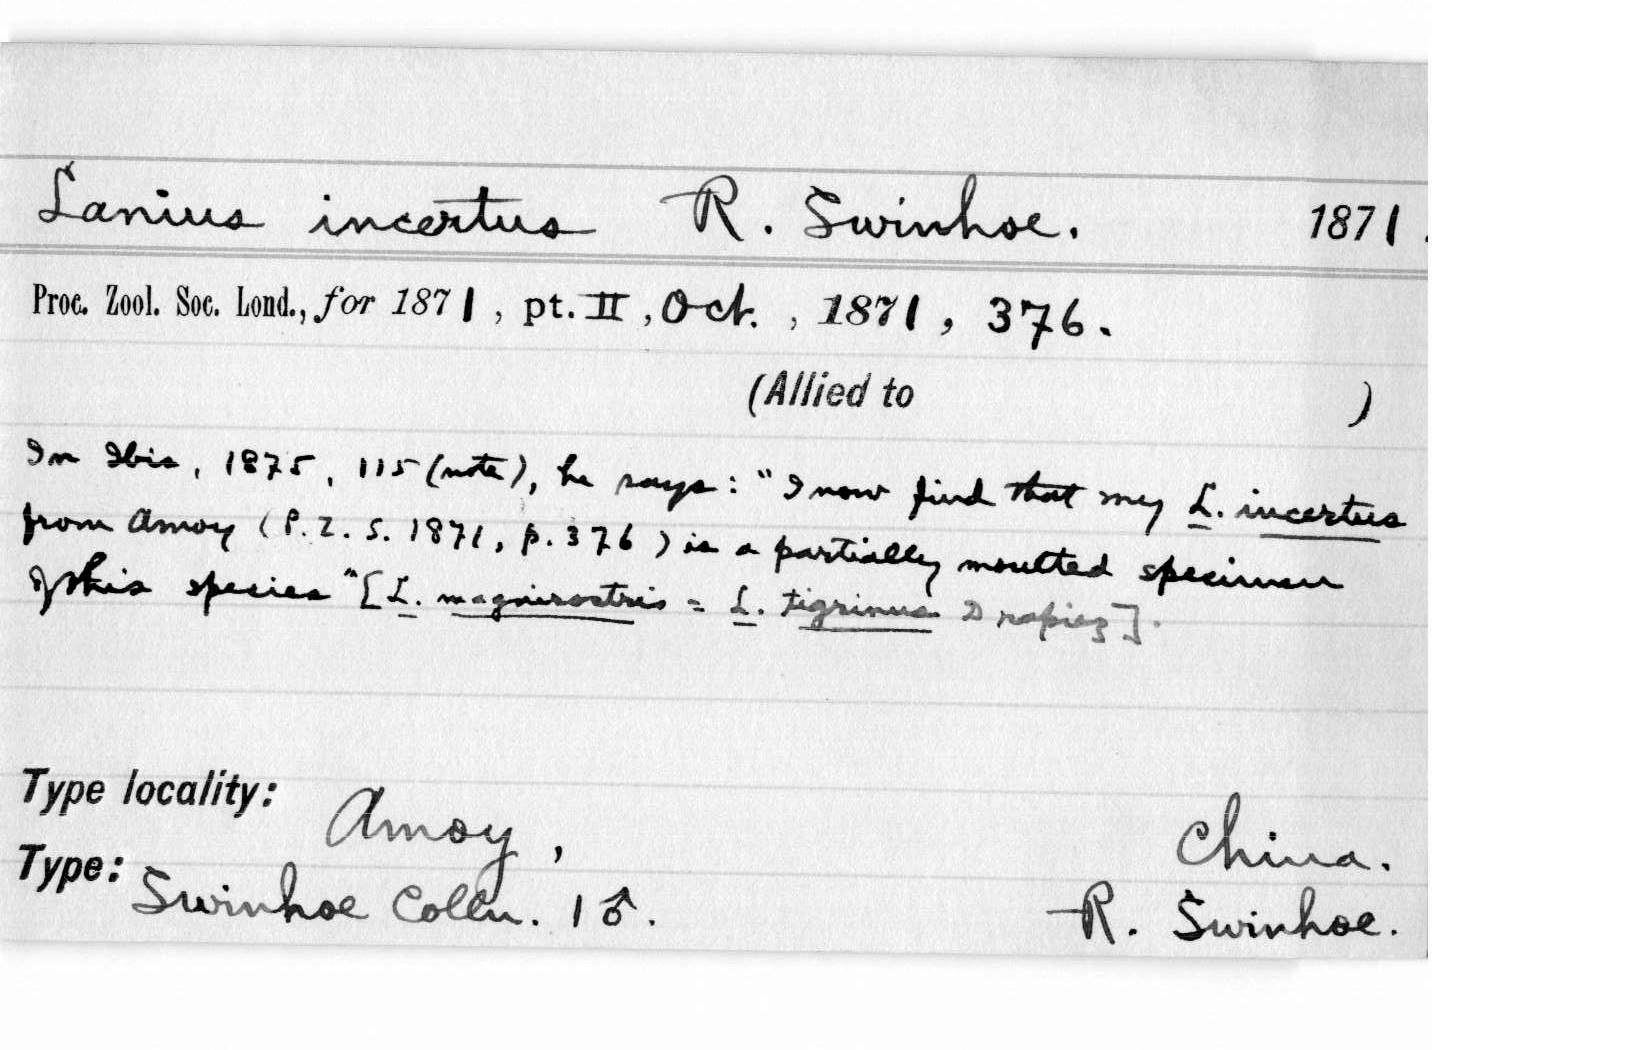 Lanius incertus R. Swinhoe. 1871.
Proc. Zool. Soc. Lond., for 1871, pt. II, Oct., 1871, 376.
(Allied to )
In Ibis, 1875, 115 (note), he says: "I now find that my L. incertus
from Amoy (P. Z. S. 1871, p. 376) is a partially moulted specimen
of this species" [L. magnirostris = L. tigrinus Drapiez].
Type locality: Amoy, China.
Type: Swinhoe Colln. 1 ♂. R. Swinhoe.